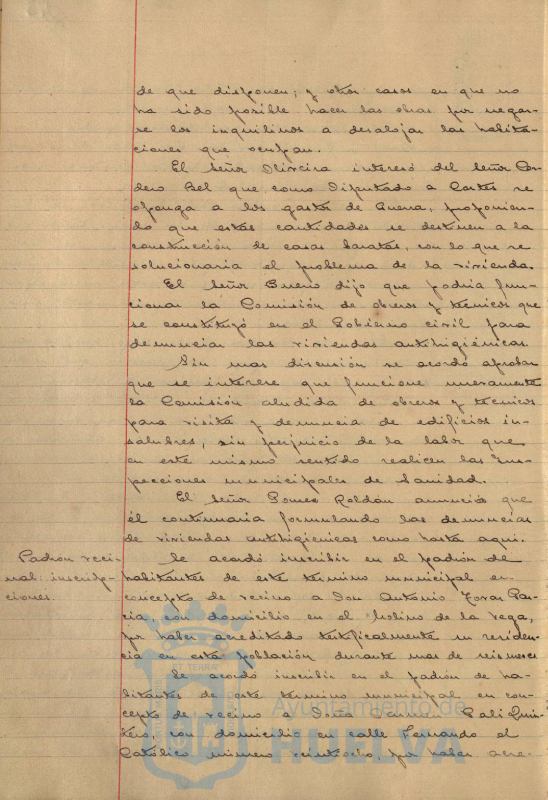 de que disponen; y otros casos en que no
ha sido posible hacer las obras por negar-
se los inquilinos a desalojar las habita-
ciones que ocupan.
El Señor Oliveira interesó del Señor Cor-
dero Bel que como Diputado a Cortes se
oponga a los gastos de Guerra, proponien-
do que estas cantidades se destinen a la
construcción de casas baratas, con lo que se
solucionaria el problema de la vivienda.
El Señor Bueno dijo que podria fun-
cionar la Comisión de obreros y técnicos que
se constituyó en el Gobierno civil para
denunciar las viviendas antihigiénicas.
Sin mas discusión se acordó aprobar
que se interese que funcione nuevamente
la Comisión aludida de obreros y técnicos
para visita y denuncia de edificios in-
salubres, sin perjuicio de la labor que
en este mismo sentido realicen las Ins-
pecciones municipales de Sanidad.
El Señor Pomes Roldán anunció que
él continuaria formulando las denuncias
de viviendas antihigienicas como hasta aqui.
Padrón veci-
nal: inscrip-
ciones.
Se acordó inscribir en el padrón de
habitantes de este término municipal en
concepto de vecino a Don Antonio Tovar Gar-
cia, con domicilio en el Molino de la Vega,
por haber acreditado testificalmente su residen-
cia en esta población durante mas de seis meses
Se acordó inscribir en el padrón de ha-
bitantes de este término municipal en con-
cepto de vecino a Doña Carmen Gali Quin-
tero, con domicilio en calle Fernando el
Católico número veintiocho, por haber acre-
ET TERRAE
Ayuntamiento de
HUELVA